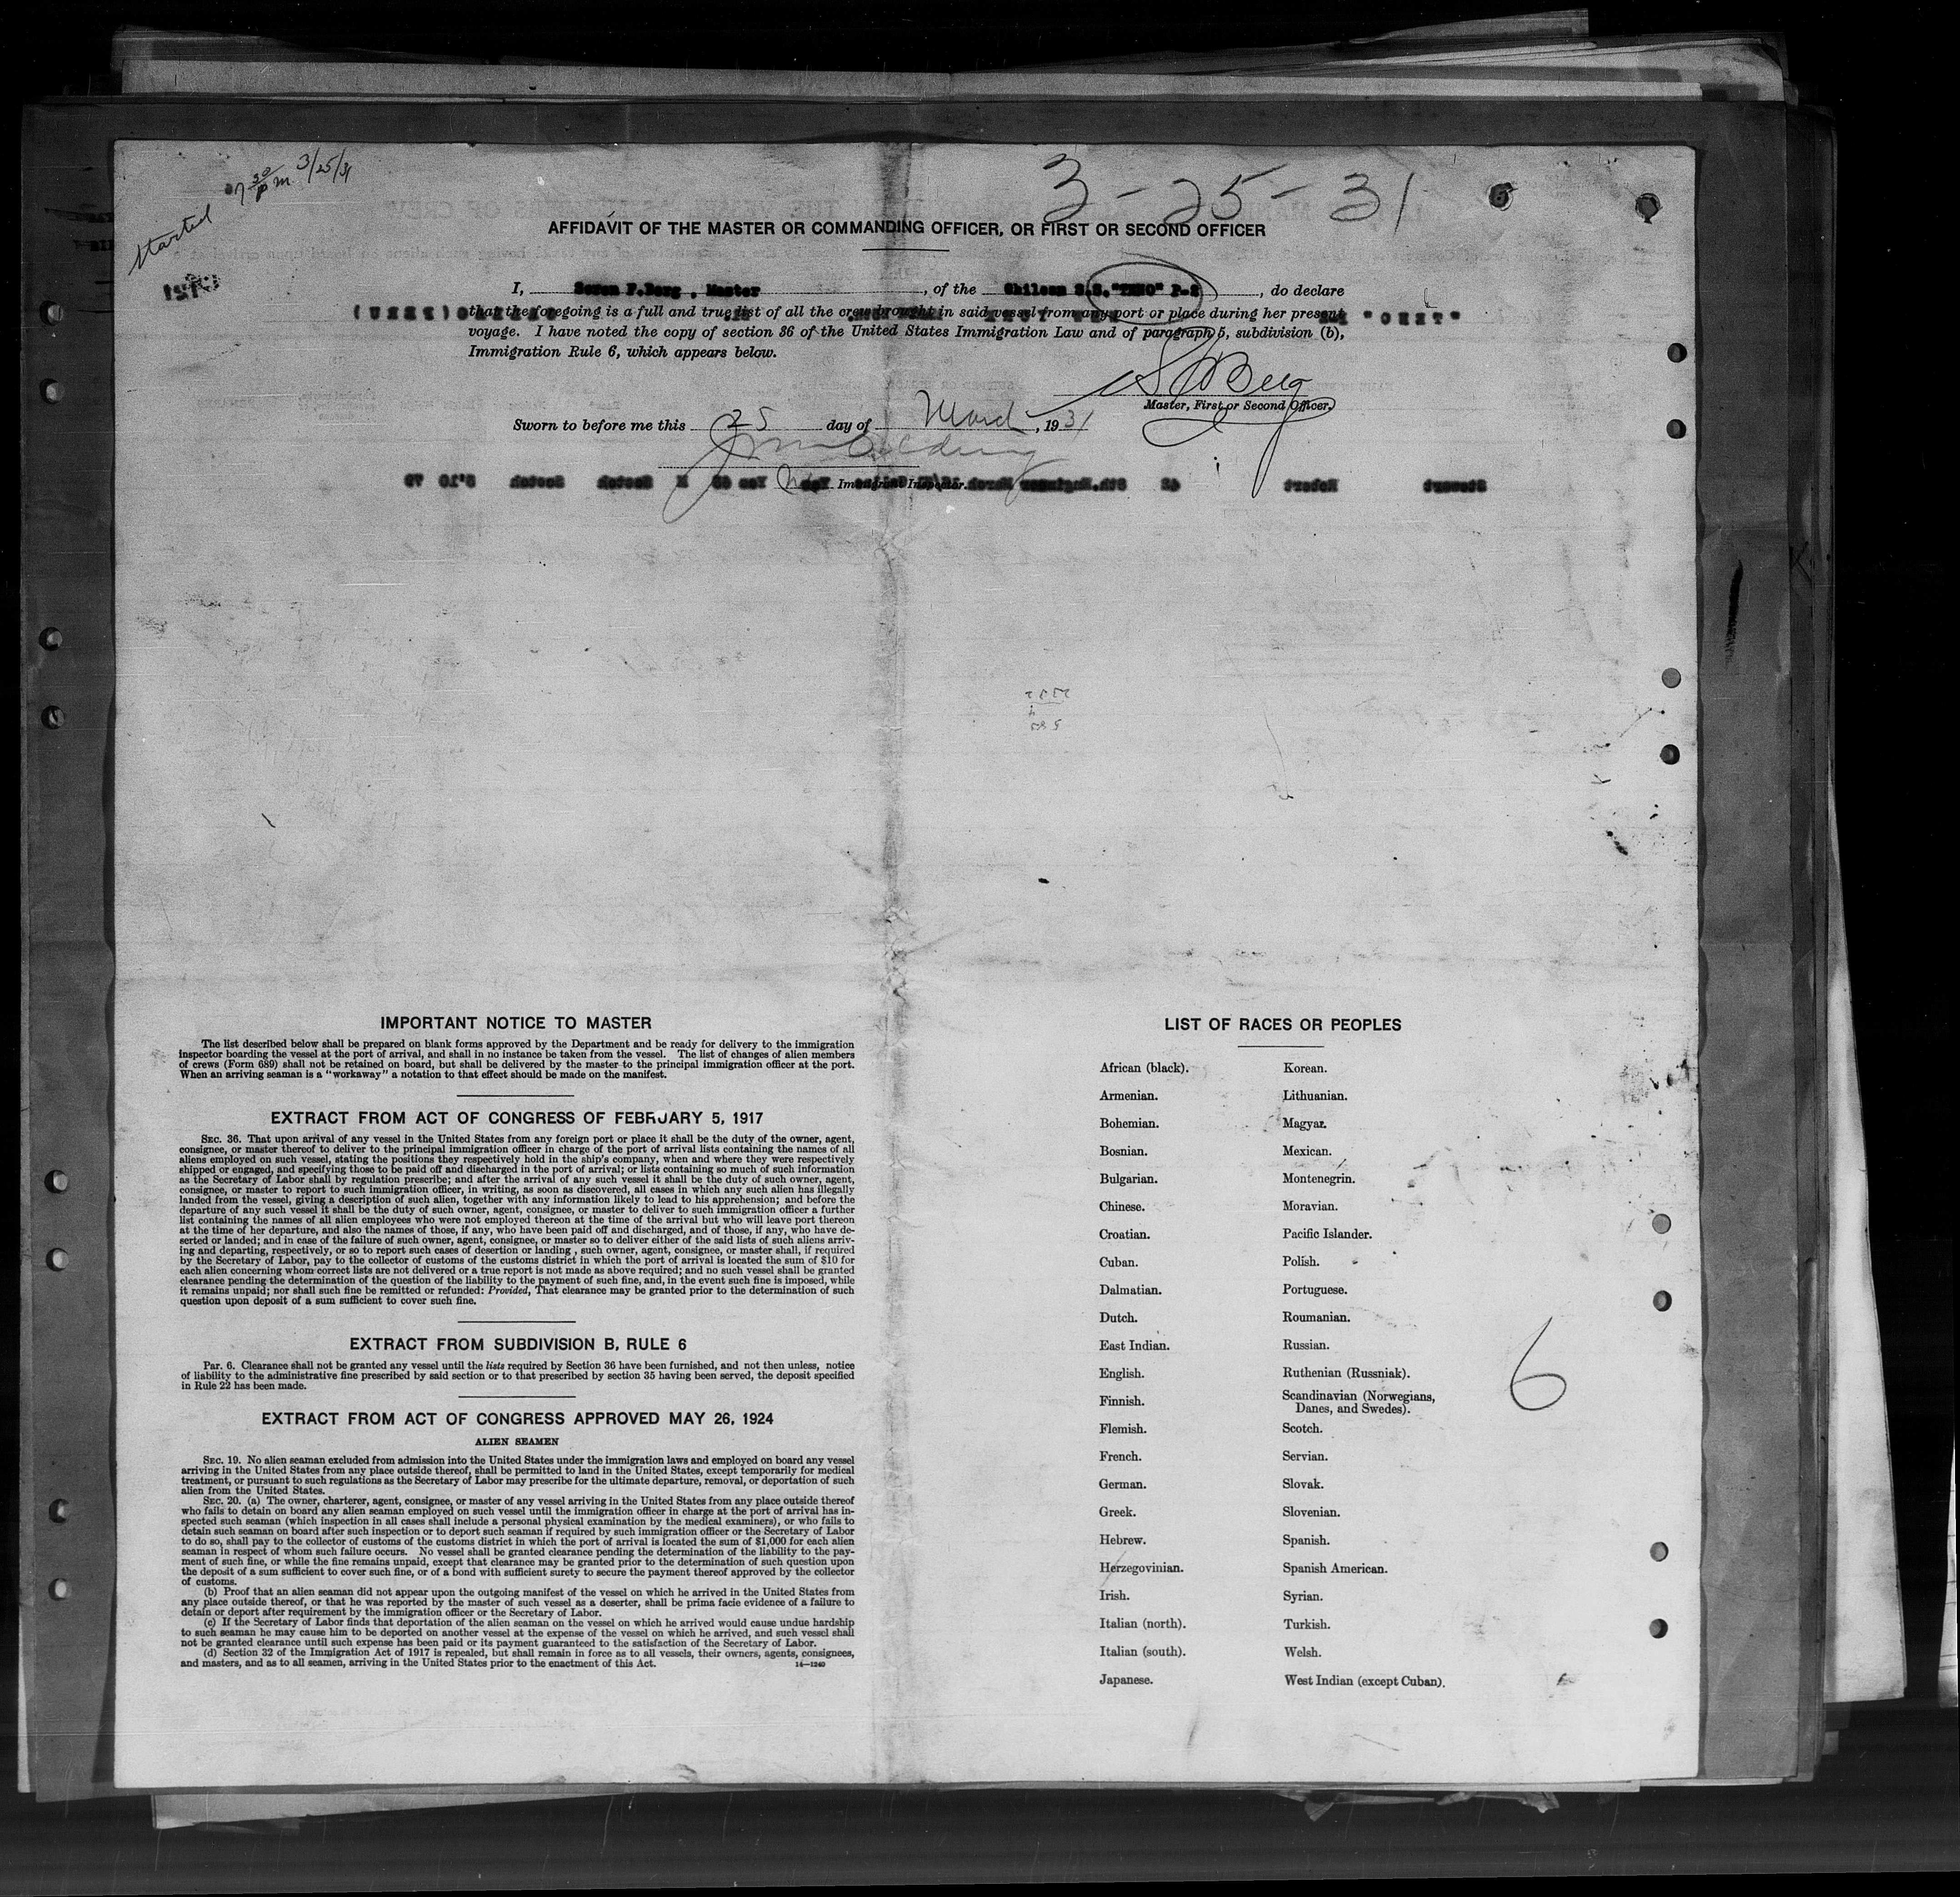 3-25-31
started 7 30 pm. 3/25/31
AFFIDAVIT OF THE MASTER OR COMMANDING OFFICER, OR FIRST OR SECOND OFFICER
I, Soren F.Berg , Master, of the Chilean S.S."TENO" P-2, do declare
that the foregoing is a full and true list of all the crew brought in said vessel from any port or place during her present
voyage. I have noted the copy of section 36 of the United States Immigration Law and of paragraph 5, subdivision (b),
Immigration Rule 6, which appears below.
S F Berg
Master, First or Second Officer.
Sworn to before me this 25 day of March, 1931
Immigrant Inspector.
IMPORTANT NOTICE TO MASTER
The list described below shall be prepared on blank forms approved by the Department and be ready for delivery to the immigration
inspector boarding the vessel at the port of arrival, and shall in no instance be taken from the vessel. The list of changes of alien members
of crews (Form 689) shall not be retained on board, but shall be delivered by the master to the principal immigration officer at the port.
When an arriving seaman is a "workaway" a notation to that effect should be made on the manifest.
EXTRACT FROM ACT OF CONGRESS OF FEBRUARY 5, 1917
SEC. 36. That upon arrival of any vessel in the United States from any foreign port or place it shall be the duty of the owner, agent,
consignee, or master thereof to deliver to the principal immigration officer in charge of the port of arrival lists containing the names of all
aliens employed on such vessel, stating the positions they respectively hold in the ship's company, when and where they were respectively
shipped or engaged, and specifying those to be paid off and discharged in the port of arrival; or lists containing so much of such information
as the Secretary of Labor shall by regulation prescribe; and after the arrival of any such vessel it shall be the duty of such owner, agent,
consignee, or master to report to such immigration officer, in writing, as soon as discovered, all cases in which any such alien has illegally
landed from the vessel, giving a description of such alien, together with any information likely to lead to his apprehension; and before the
departure of any such vessel it shall be the duty of such owner, agent, consignee, or master to deliver to such immigration officer a further
list containing the names of all alien employees who were not employed thereon at the time of the arrival but who will leave port thereon
at the time of her departure, and also the names of those, if any, who have been paid off and discharged, and of those, if any, who have de-
serted or landed; and in case of the failure of such owner, agent, consignee, or master so to deliver either of the said lists of such aliens arriv-
ing and departing, respectively, or so to report such cases of desertion or landing , such owner, agent, consignee, or master shall, if required
by the Secretary of Labor, pay to the collector of customs of the customs district in which the port of arrival is located the sum of $10 for
each alien concerning whom correct lists are not delivered or a true report is not made as above required; and no such vessel shall be granted
clearance pending the determination of the question of the liability to the payment of such fine, and, in the event such fine is imposed, while
it remains unpaid; nor shall such fine be remitted or refunded: Provided, That clearance may be granted prior to the determination of such
question upon deposit of a sum sufficient to cover such fine.
EXTRACT FROM SUBDIVISION B, RULE 6
Par. 6. Clearance shall not be granted any vessel until the lists required by Section 36 have been furnished, and not then unless, notice
of liability to the administrative fine prescribed by said section or to that prescribed by section 35 having been served, the deposit specified
in Rule 22 has been made.
EXTRACT FROM ACT OF CONGRESS APPROVED MAY 26, 1924
ALIEN SEAMEN
SEC. 19. No alien seaman excluded from admission into the United States under the immigration laws and employed on board any vessel
arriving in the United States from any place outside thereof, shall be permitted to land in the United States, except temporarily for medical
treatment, or pursuant to such regulations as the Secretary of Labor may prescribe for the ultimate departure, removal, or deportation of such
alien from the United States.
SEC. 20. (a) The owner, charterer, agent, consignee, or master of any vessel arriving in the United States from any place outside thereof
who fails to detain on board any alien seaman employed on such vessel until the immigration officer in charge at the port of arrival has in-
spected such seaman (which inspection in all cases shall include a personal physical examination by the medical examiners), or who fails to
detain such seaman on board after such inspection or to deport such seaman if required by such immigration officer or the Secretary of Labor
to do so, shall pay to the collector of customs of the customs district in which the port of arrival is located the sum of $1,000 for each alien
seaman in respect of whom such failure occurs. No vessel shall be granted clearance pending the determination of the liability to the pay-
ment of such fine, or while the fine remains unpaid, except that clearance may be granted prior to the determination of such question upon
the deposit of a sum sufficient to cover such fine, or of a bond with sufficient surety to secure the payment thereof approved by the collector
of customs.
(b) Proof that an alien seaman did not appear upon the outgoing manifest of the vessel on which he arrived in the United States from
any place outside thereof, or that he was reported by the master of such vessel as a deserter, shall be prima facie evidence of a failure to
detain or deport after requirement by the immigration officer or the Secretary of Labor.
(c) If the Secretary of Labor finds that deportation of the alien seaman on the vessel on which he arrived would cause undue hardship
to such seaman he may cause him to be deported on another vessel at the expense of the vessel on which he arrived, and such vessel shall
not be granted clearance until such expense has been paid or its payment guaranteed to the satisfaction of the Secretary of Labor.
(d) Section 32 of the Immigration Act of 1917 is repealed, but shall remain in force as to all vessels, their owners, agents, consignees,
and masters, and as to all seamen, arriving in the United States prior to the enactment of this Act.
14—1240
LIST OF RACES OR PEOPLES
African (black).
Armenian.
Bohemian.
Bosnian.
Bulgarian.
Chinese.
Croatian.
Cuban.
Dalmatian.
Dutch.
East Indian.
English.
Finnish.
Flemish.
French.
German.
Greek.
Hebrew.
Herzegovinian.
Irish.
Italian (north).
Italian (south).
Japanese.
Korean.
Lithuanian.
Magyar.
Mexican.
Montenegrin.
Moravian.
Pacific Islander.
Polish.
Portuguese.
Roumanian.
Russian.
Ruthenian (Russniak).
Scandinavian (Norwegians,
Danes, and Swedes).
Scotch.
Servian.
Slovak.
Slovenian.
Spanish.
Spanish American.
Syrian.
Turkish.
Welsh.
West Indian (except Cuban).
6